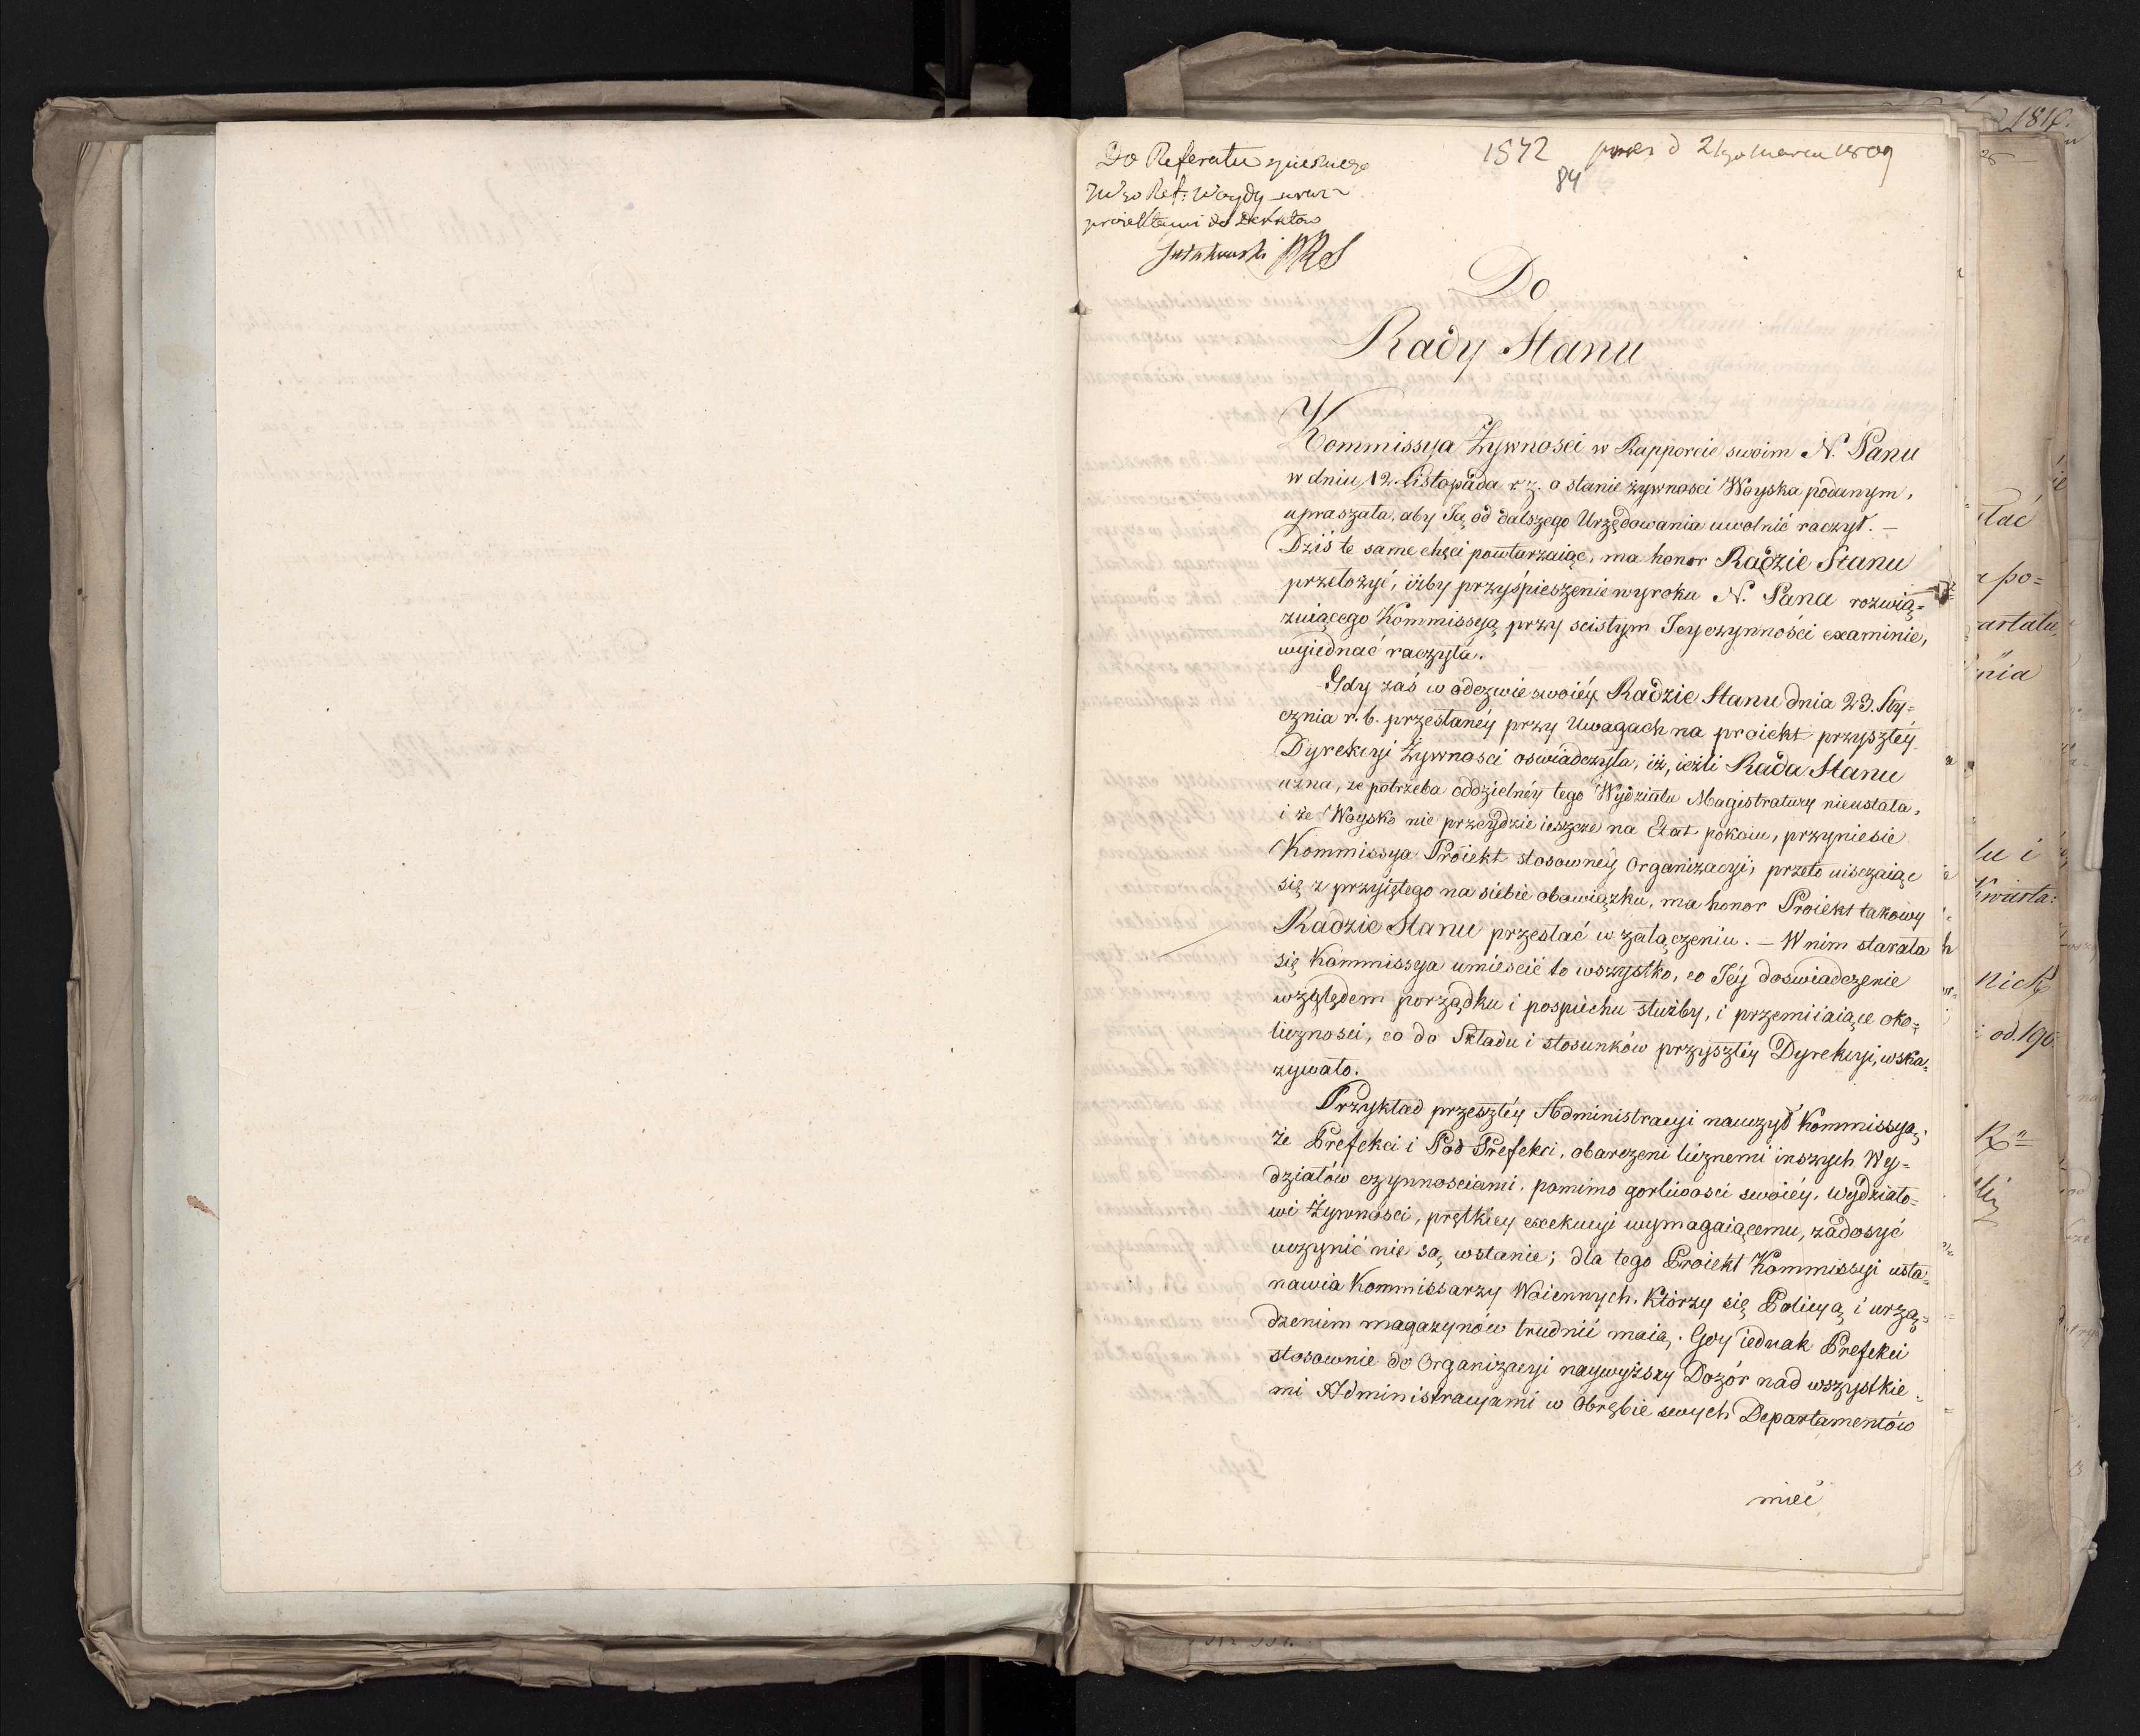 Do Referatu
JWgo Ref: Woydy wraz
proiektami do Dekretow
1542
d 21go Marca 1809
84
Do
Rady Stanu
Kommissya Żywnosci w Rapporcie swoim N. Panu
w dniu 12 Listopada r. z. o stanie żywnosci Woyska podanym,
upraszała, aby Ją od dalszego Urzędowania uwolnić raczył. –
Dziś te same chęci powtarzaiąc, ma honor Radzie Stanu
przełożyć, iżby przyśpieszenie wyroku N. Pana rozwią=
zuiącego Kommissyą przy scisłym Jey czynności examinie,
wyiednać raczyła.
Gdy zaś w odezwie swoiéy Radzie Stanu dnia 23. Sty=
cznia r. b. przesłanéy przy Uwagach na proiekt przyszłéy
Dyrekcyi Żywnosci oswiadczyła, iż, ieżli Rada Stanu
uzna, że potrzeba oddzielnéy tego Wydziału Magistratury nieustała,
i że Woysko nie przeydzie ieszcze na Etat pokoiu, przyniesie
Kommissya Proiekt stosownéy Organizacyi; przeto uisczaiąc
się z przyiętego na siebie obowiązku, ma honor Proiekt takowy
Radzie Stanu przesłać w załączeniu. – W nim starała
się Kommissya umieścić to wszystko, co Jéy doswiadczenie
względem porządku i pospiechu służby, i przemiiaiące oko=
licznosci, co do Składu i stosunków przyszłéy Dyrekcyi, wska=
zywało.
Przykład przeszłéy Administracyi nauczył Kommissyą,
że Prefekci i Pod Prefekci, obarczeni licznemi inszych Wy=
działów czynnosciami, pomimo gorliwosci swoiéy, Wydziało=
wi Żywnosci, prętkiey exekucyi wymagaiącemu, zadosyć
uczynić nie są wstanie; dla tego Proiekt Kommissyi usta=
nawia Kommissarzy Woiennych, Którzy się Policyą i urzą=
dzeniem magazynów trudnić maią. Gdy iednak Prefekci
stosownie do Organizacyi naywyższy Dozór nad wszystkie=
mi Administracyami w Obrębie swych Departamentów
mieć